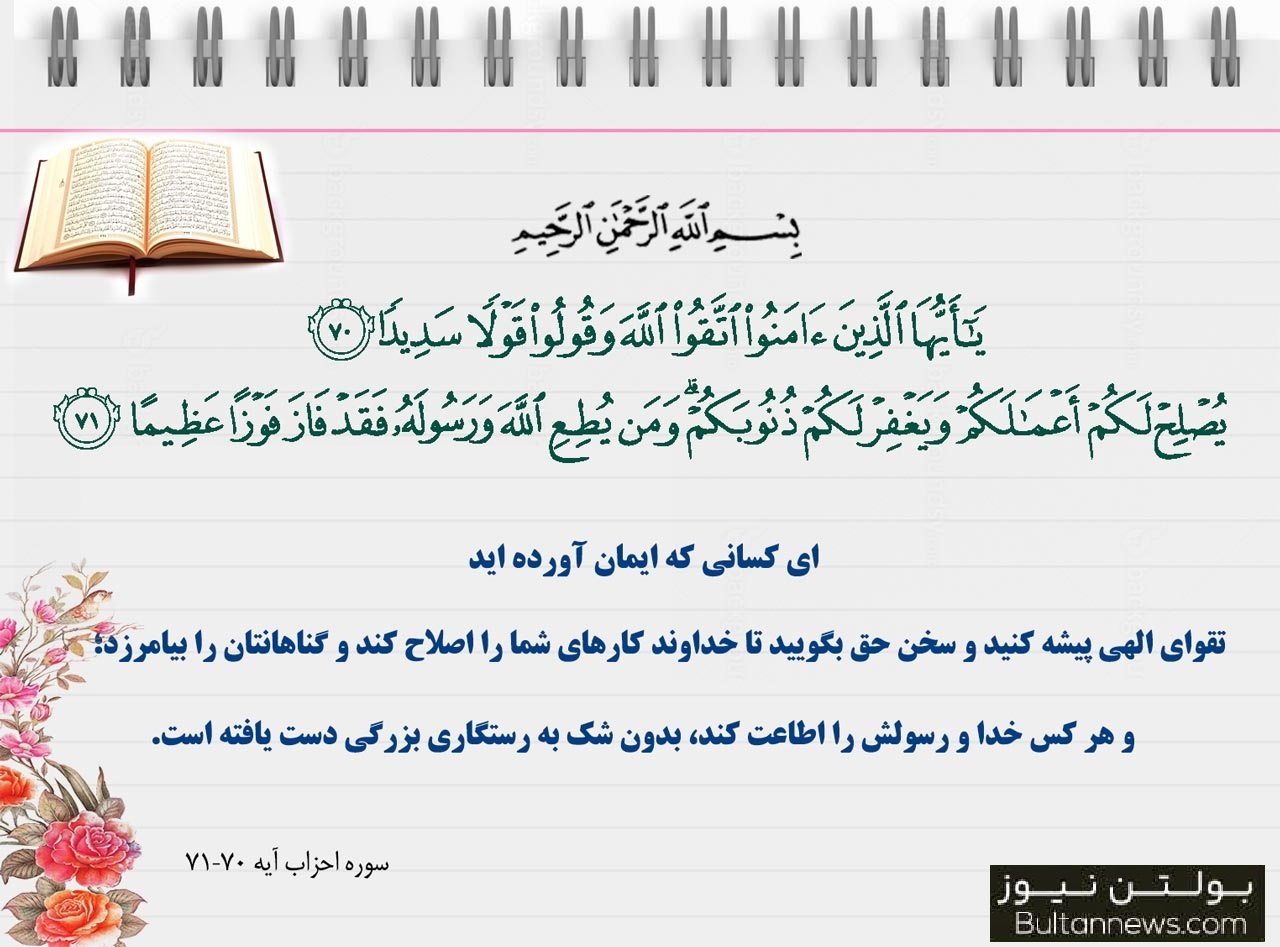 بِسْمِ ٱللَّهِ ٱلرَّحْمَٰنِ ٱلرَّحِيمِ
يَـٰٓأَيُّهَا ٱلَّذِينَ ءَامَنُوا۟ ٱتَّقُوا۟ ٱللَّهَ وَقُولُوا۟ قَوْلًا سَدِيدًا ٧٠
يُصْلِحْ لَكُمْ أَعْمَـٰلَكُمْ وَيَغْفِرْ لَكُمْ ذُنُوبَكُمْ ۗ وَمَن يُطِعِ ٱللَّهَ وَرَسُولَهُۥ فَقَدْ فَازَ فَوْزًا عَظِيمًا ٧١
ای کسانی که ایمان آورده اید
تقوای الهی پیشه کنید و سخن حق بگویید تا خداوند کارهای شما را اصلاح کند و گناهانتان را بیامرزد؛
و هر کس خدا و رسولش را اطاعت کند، بدون شک به رستگاری بزرگی دست یافته است.
سوره احزاب آیه ۷۰-۷۱
بولتن نیوز
Bultannews.com